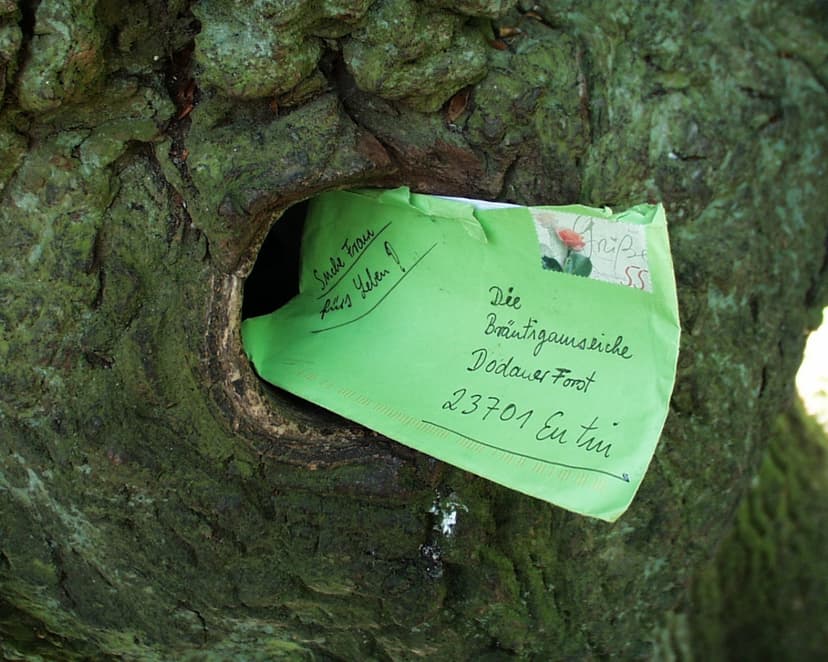 Suche Frau
fürs Leben
Grüße
55
Die
Bräutigamseiche
Dodauer Forst
23701 Eutin